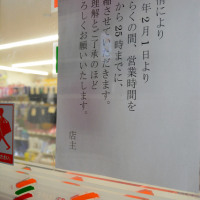 情により
年2月1日より
らくの間、営業時間を
から25時までに、
縮させていただきます。
理解とご了承のほど
ろしくお願いいたします。
店主